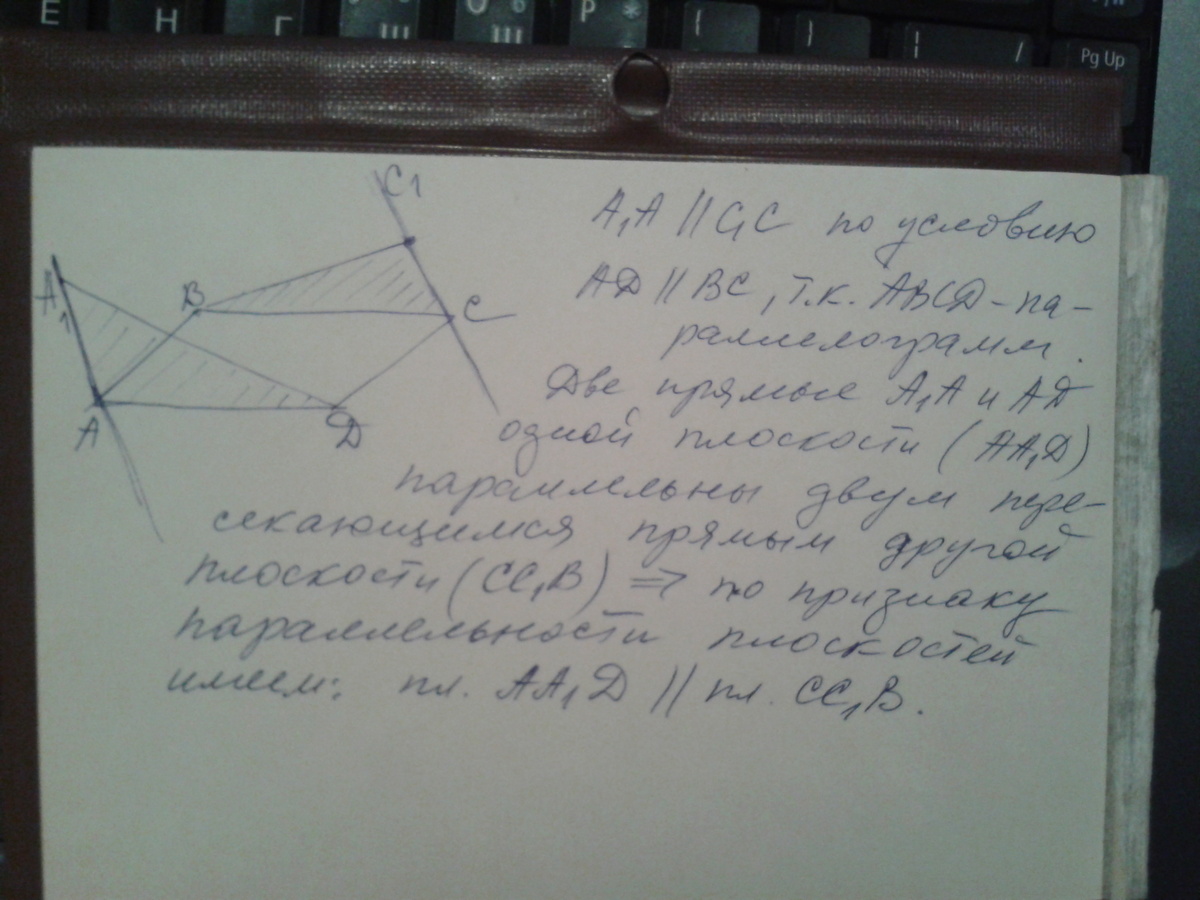 Е Н Г Ш О Щ Р * { [ } ] | /
Pg Up
C1
A1
B
C
A
D
A₁A || C₁C по условию
AD || BC, т.к. ABCD - па-
раллелограмм.
Две прямые A₁A и AD
одной плоскости (AA₁D)
параллельны двум пере-
секающимся прямым другой
плоскости (CC₁B) => по признаку
параллельности плоскостей
имеем: пл. AA₁D || пл. CC₁B.